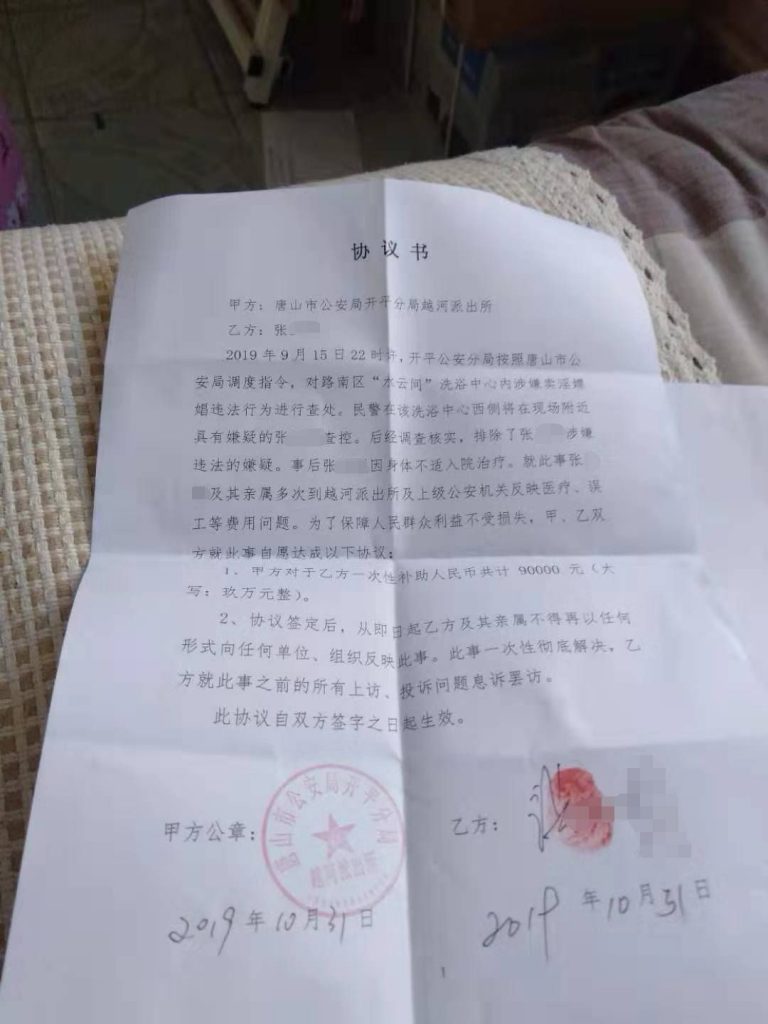 协议书
甲方：唐山市公安局开平分局越河派出所
乙方：张
2019年9月15日22时许，开平公安分局按照唐山市公
安局调度指令，对路南区“水云间”洗浴中心内涉嫌卖淫嫖
娼违法行为进行查处。民警在该洗浴中心西侧将在现场附近
具有嫌疑的张 查控。后经调查核实，排除了张 涉嫌
违法的嫌疑。事后张 因身体不适入院治疗。就此事张
及其亲属多次到越河派出所及上级公安机关反映医疗、误
工等费用问题。为了保障人民群众利益不受损失，甲、乙双
方就此事自愿达成以下协议：
1、甲方对于乙方一次性补助人民币共计 90000 元（大
写：玖万元整）。
2、协议签定后，从即日起乙方及其亲属不得再以任何
形式向任何单位、组织反映此事。此事一次性彻底解决，乙
方就此事之前的所有上访、投诉问题息诉罢访。
此协议自双方签字之日起生效。
甲方公章：
唐山市公安局开平分局
越河派出所
乙方：
2019年10月31日
2019年10月31日
1